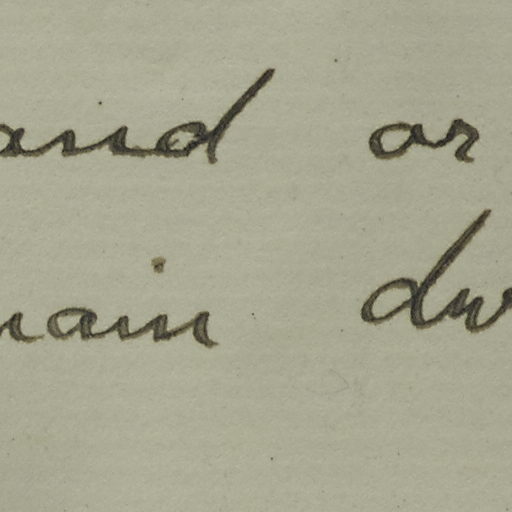 and or
main dw